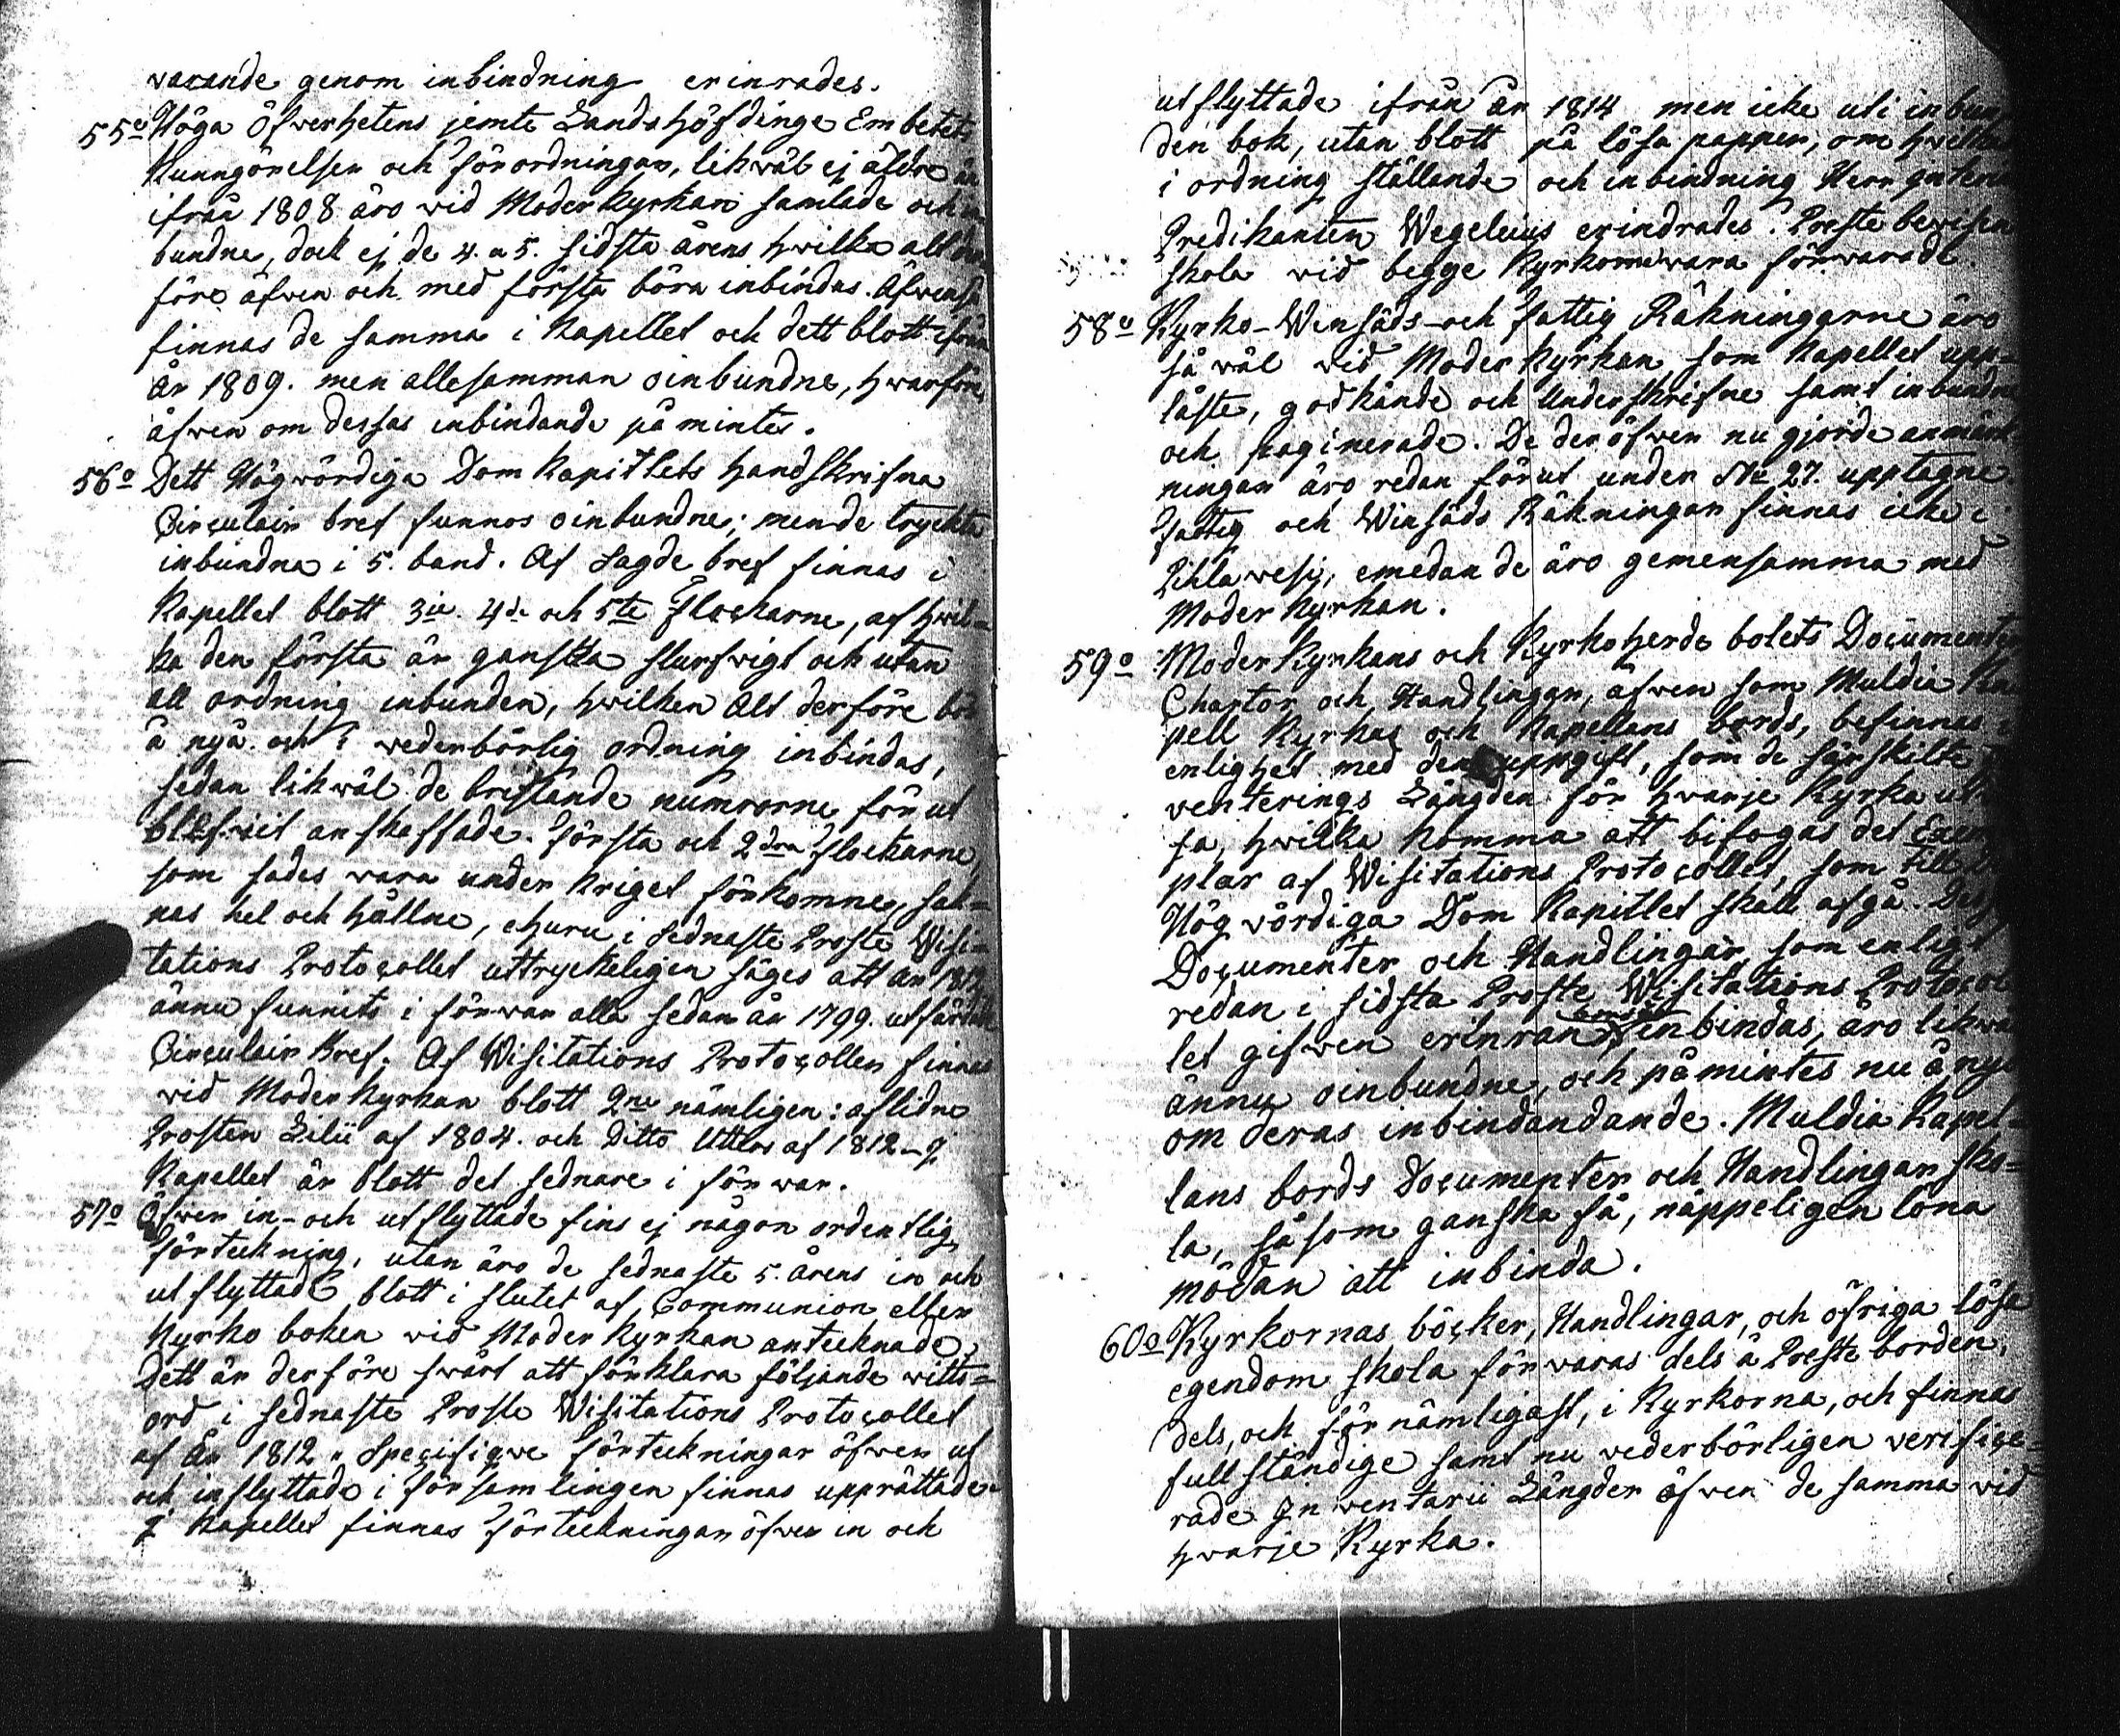 varande genom inbindning erinrades.
55o Höga Öfverhetens jemte Landshöfdinge Embetets
Kunngörelser och förordningar, likwäl ej äldre än
ifrån 1808 äro wid Moderkyrkan samlade och in
bundne, dock ej de 4. a 5. sidsta årens hwilka alt der
före äfven och med första böra inbindas. Äfvenså
finnas de samma i Kapellet och dett blott ifrån
år 1809. men allesamman oinbundne, hwarföre
äfwen om dessas inbindande påmintes.
56o Dett Högwördiga Dom Kapitlets handskrifna
Circulair bref funnos oinbundne; men de tryckta
inbundna i 5. band. Af sagde bref finnas i
Kapellet blott 3ie. 4de och 5te Flockarne, af hwil=
ka den första är ganska slurfvigt och utan
all ordning inbunden, hwilken alt derföre bör
å nya och i wederbörlig ordning inbindas,
sedan likwäl de bristande numrorne förut
blifvit anskaffade. Första och 2dra flockarne,
som sades wara under kriget förkomne, sak=
nas hel och hållne, ehuru i sednaste Proste Wisi=
tations Protocollet uttryckeligen säges att år 1812
ännu funnits i förwar alla sedan år 1799. utfärdade
Circulair Bref. Af Wisitations Protocoller finnes
wid Moderkyrkan blott 2ne nämligen: aflidne
Prosten Lilii af 1804. och Ditto Utters af 1812 - I
Kapellet är blott det sednare i förwar.
57o Öfwer in- och utflyttade fins ej någon ordentlig
förteckning, utan äro de sednaste 5. årens in och
utflyttade blott i slutet af Communion eller
Kyrko boken wid Moderkyrkan antecknade.
Dett är derföre swårt att förklara följande witts=
ord i sednaste Proste Wisitations Protocollet
af År 1812 „ Specifiqve förteckningar öfwer ut
och inflyttade i församlingen finnas upprättade.
I Kapellet finnas förteckningar öfver in och
utflyttade ifrån år 1814 men icke uti inbun
den bok, utan blott på lösa papper, om hwilkas
i ordning ställande och inbindning Herr
Predikanten Wegelius erindrades. Preste bewisen
skola wid begge Kyrkorna wara förwarade.
58o Kyrko- Winsäds- och fattig Räkningarne äro
så wäl wid Moderkyrkan som Kapellet upp=
läste, godkände och Underskrifne samt inbundne
och paginerade. De deröfwer nu gjorde anmärk
ningar äro redan förut under No 27. upptagne
fattig och Winsäds Räkningar finnas icke i
Pihlawesi, emedan de äro gemensamma med
Moder kyrkan.
59o Moderkyrkans och Kyrkoherde bolets Documenter
Chartor och Handlingar, äfwen som Muldia Ka
pell Kyrkas och Kapellans bords, befinnas i
enlighet med den uppgift, som de särskilte
venterings Längden för hwarje Kyrka
sa, hwilka komma att bifogas det Exem
plar af Wisitations Protocollet, som till
Högwördiga Dom Kapitlet skall afgå.
Documenter och Handlingar, som enligt
redan i sidsta Proste Wisitations Protocol
let gifven erinran inbindas, äro likwäl
ännu oinbundne, och påmintes nu å nyo
om deras inbindandande. Muldia Kapel=
lans bords Documenter och Handlingar sko=
la, såsom ganska få, näppeligen löna
mödan att inbinda.
60o Kyrkornas böcker, Handlingar, och öfriga lösa
egendom skola förvaras dels å Preste borden,
dels, och förnämligast, i Kyrkorna, och finnas
fullständige samt nu wederbörligen verifice=
rade Inventarii Längder öfwer de samma wid
hwarje Kyrka.